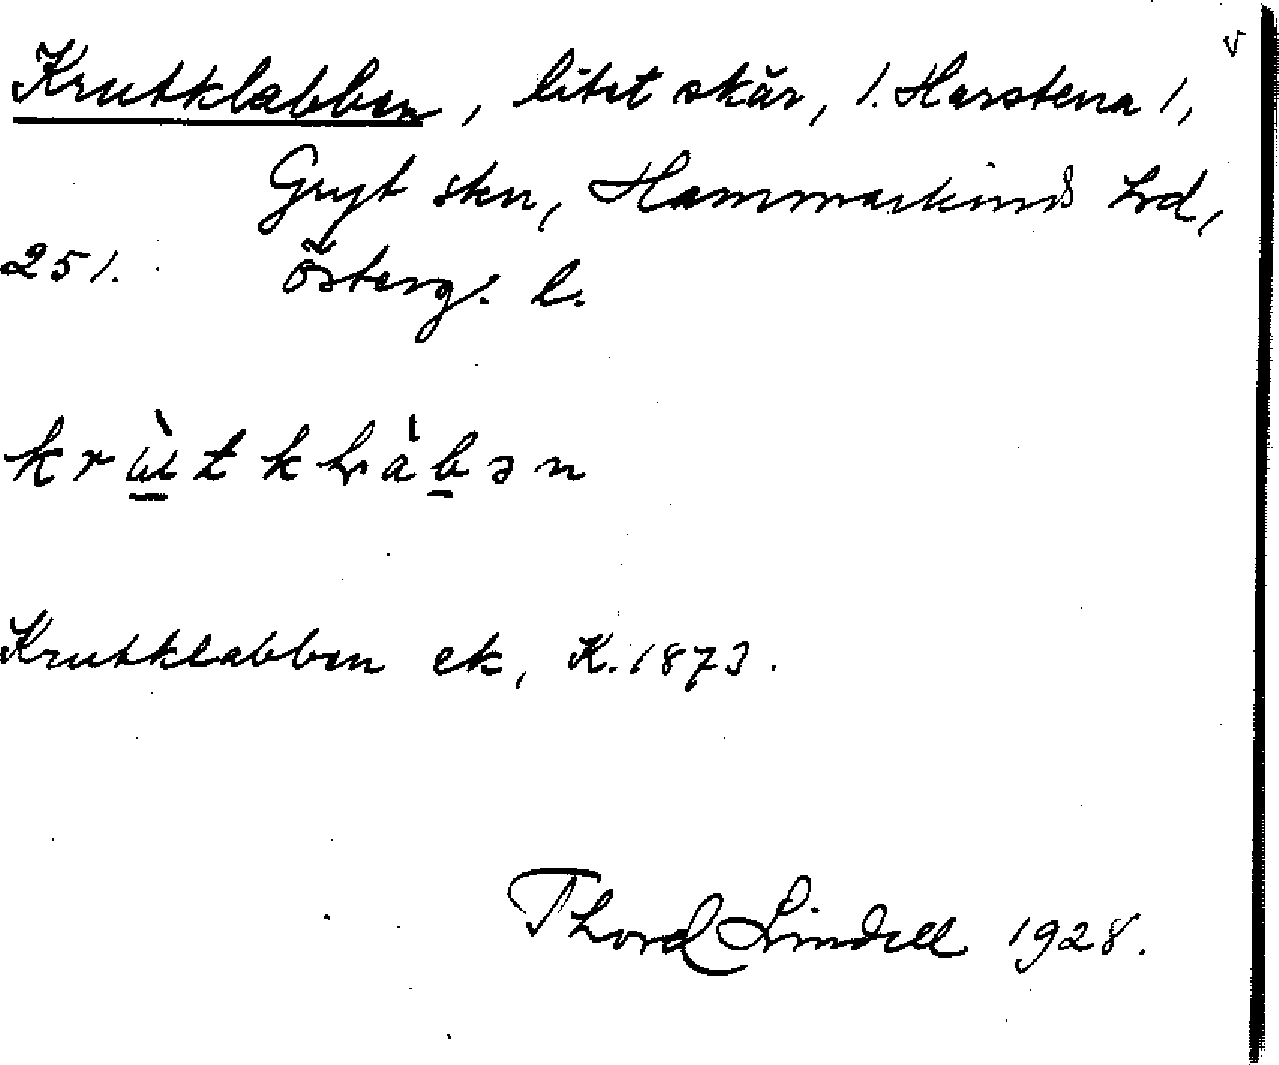 Krutklabben, litet skär, 1. Harstena 1,
Gryt skn, Hammarkinds hrd,
251. Österg. l.
Krutklabben ek, K. 1873.
Thord Lindell 1928.